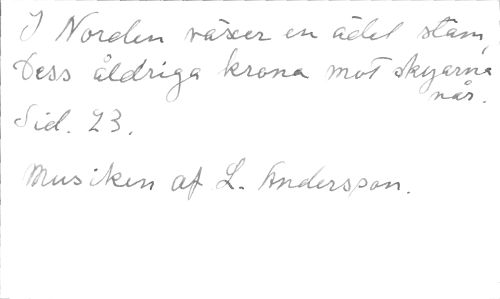 I Norden växer en ädel stam,
Dess åldriga krona mot skyarna
når.
Sid. 23.
Musiken af L. Andersson.